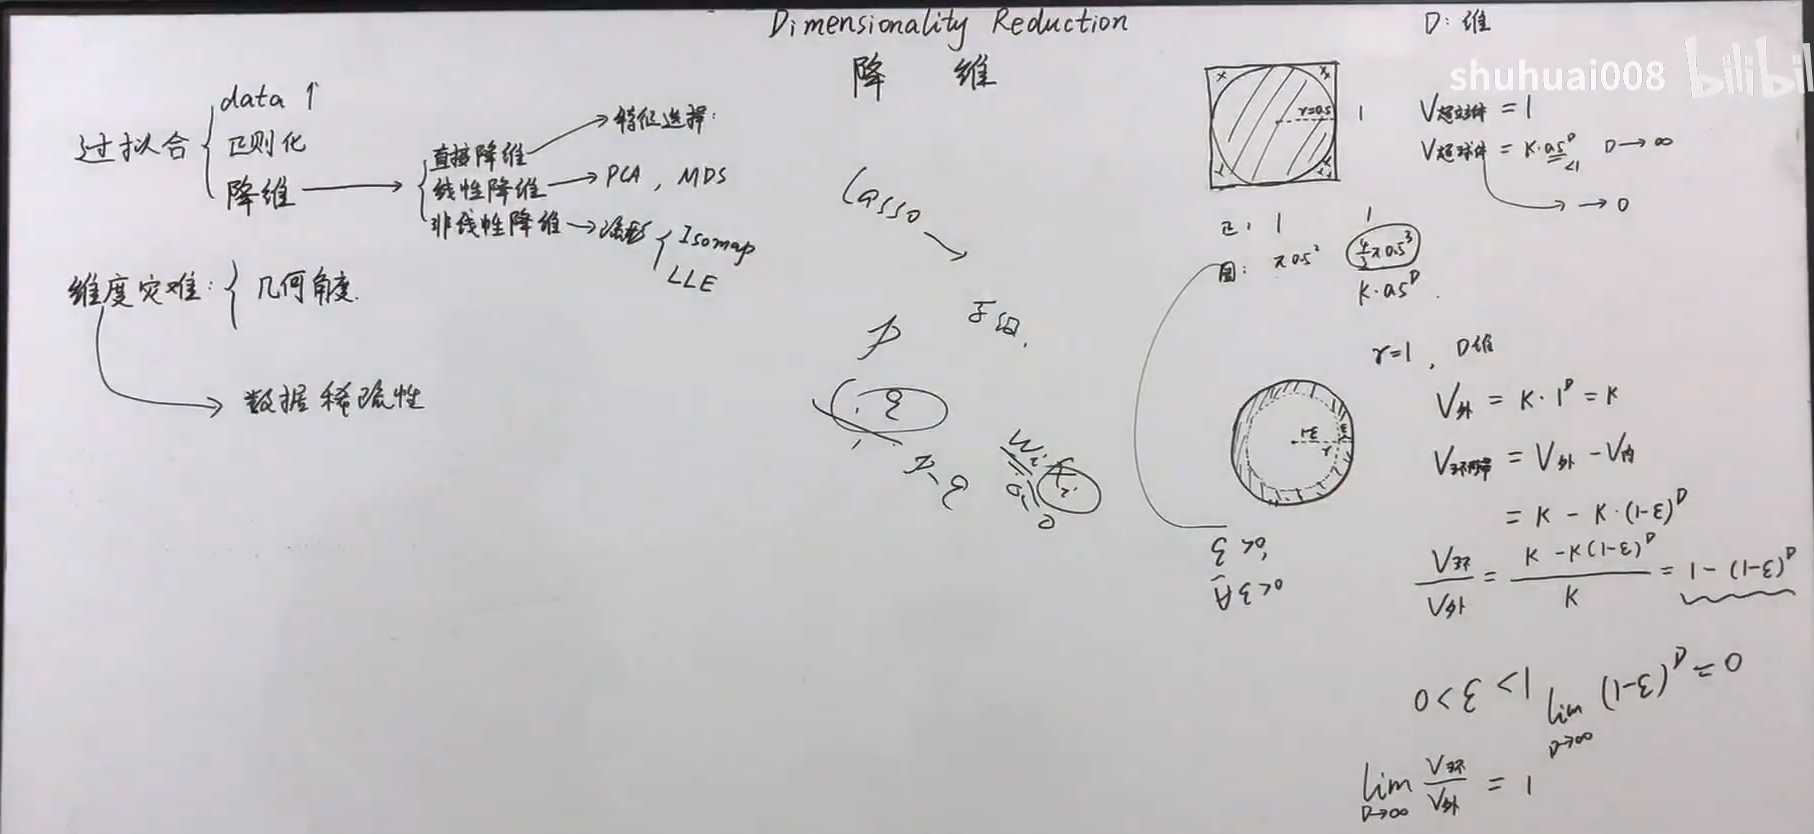 Dimensionality Reduction
降 维
D: 维
shuhuai008 bilibil
过拟合
data ↑
正则化
降维
直接降维
特征选择:
线性降维
PCA , MDS
非线性降维
流形
Isomap
LLE
维度灾难:
几何角度.
数据稀疏性
Lasso
r=0.5
1
V超立方体 = 1
V超球体 = K·0.5ᴰ D→∞
<1
→ 0
正: 1 1
圆: π0.5² 4/3π0.5³
K·0.5ᴰ
r=1, D维
1-ε
V外 = K·1ᴰ = K
V环形带 = V外 - V内
= K - K·(1-ε)ᴰ
V环/V外 = (K - K(1-ε)ᴰ)/K = 1 - (1-ε)ᴰ
0<ε<1
lim D→∞ (1-ε)ᴰ = 0
lim D→∞ V环/V外 = 1